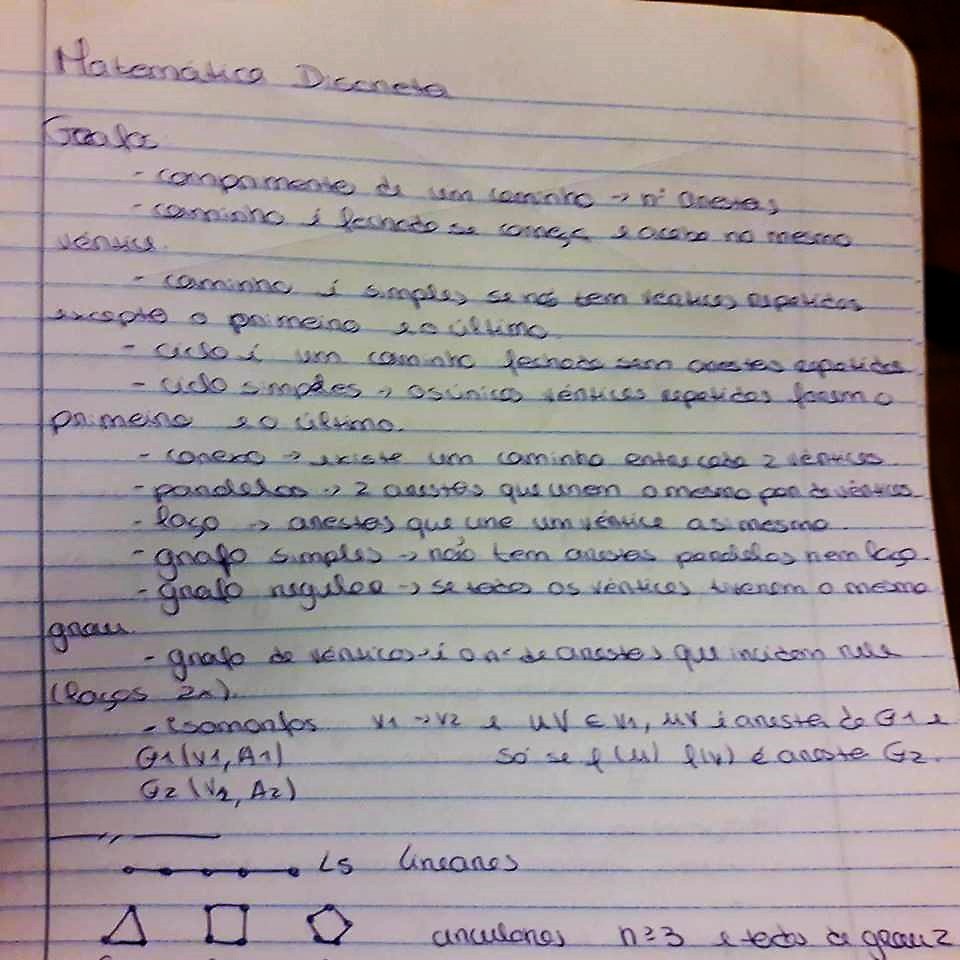 Matemática Discreta
Grafos
- comprimento de um caminho → nº arestas
- caminho é fechado se começa e acaba no mesmo
vértice.
- caminho é simples se não tem vértices repetidos
excepto o primeiro e o último.
- ciclo é um caminho fechado sem arestas repetidas
- ciclo simples → os únicos vértices repetidos forem o
primeiro e o último.
- conexo → existe um caminho entre cada 2 vértices
- paralelas → 2 arestas que unem o mesmo par de vértices
- laço → arestas que une um vértice a si mesmo
- grafo simples → não tem arestas paralelas nem laço.
- grafo regular → se todos os vértices tiverem o mesmo
grau.
- grafo de vértices → é o nº de arestas que incidem nele
(laços 2x).
- Isomorfos V1 → V2 e uv ∈ V1, uv é aresta de G1 e
G1(V1, A1) só se f(u) f(v) é aresta G2.
G2(V2, A2)
L5 lineares
circulares n≥3 e todos de grau 2